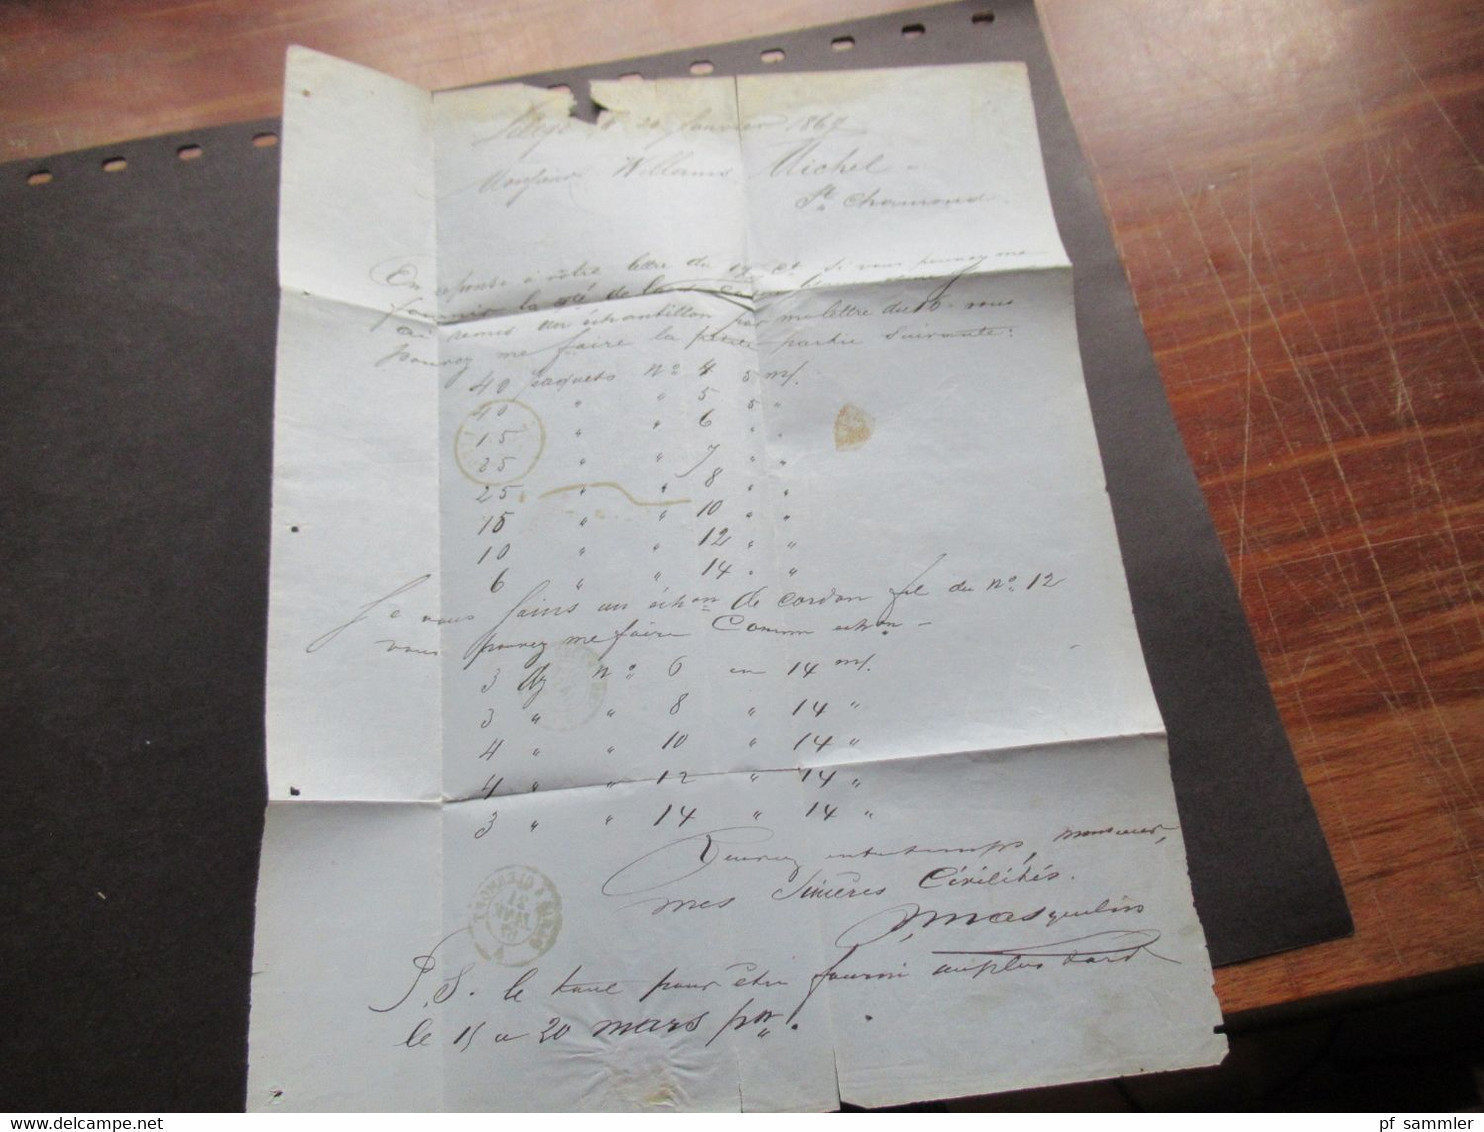 Liège le 20 Janvier 1869
Monsieur Willams Michel
St. Chamond
En réponse à votre lettre du 19 ct. si vous pouvez me
fournir la qté de
ai remis un échantillon par ma lettre du 16 vous
pouvez me faire la petite partie suivante:
40 paquets n° 4 5 m/.
40 " " 5 5 "
15 " " 6 " "
35 " " 7 " "
25 " " 8 " "
15 " " 10 " "
10 " " 12 " "
6 " " 14 " "
Je vous joins un échon de cordon fil du n° 12
vous pouvez me faire Comme echon -
3 dz n° 6 en 14 m/.
3 " " 8 " 14 "
4 " " 10 " 14 "
4 " " 12 " 14 "
3 " " 14 " 14 "
Recevez entretemps, monsieur,
mes Sincères Civilités.
Masquelin
P.S. le tout pour être fourni au plus tard
le 15 a 20 mars pn.
pf sammler